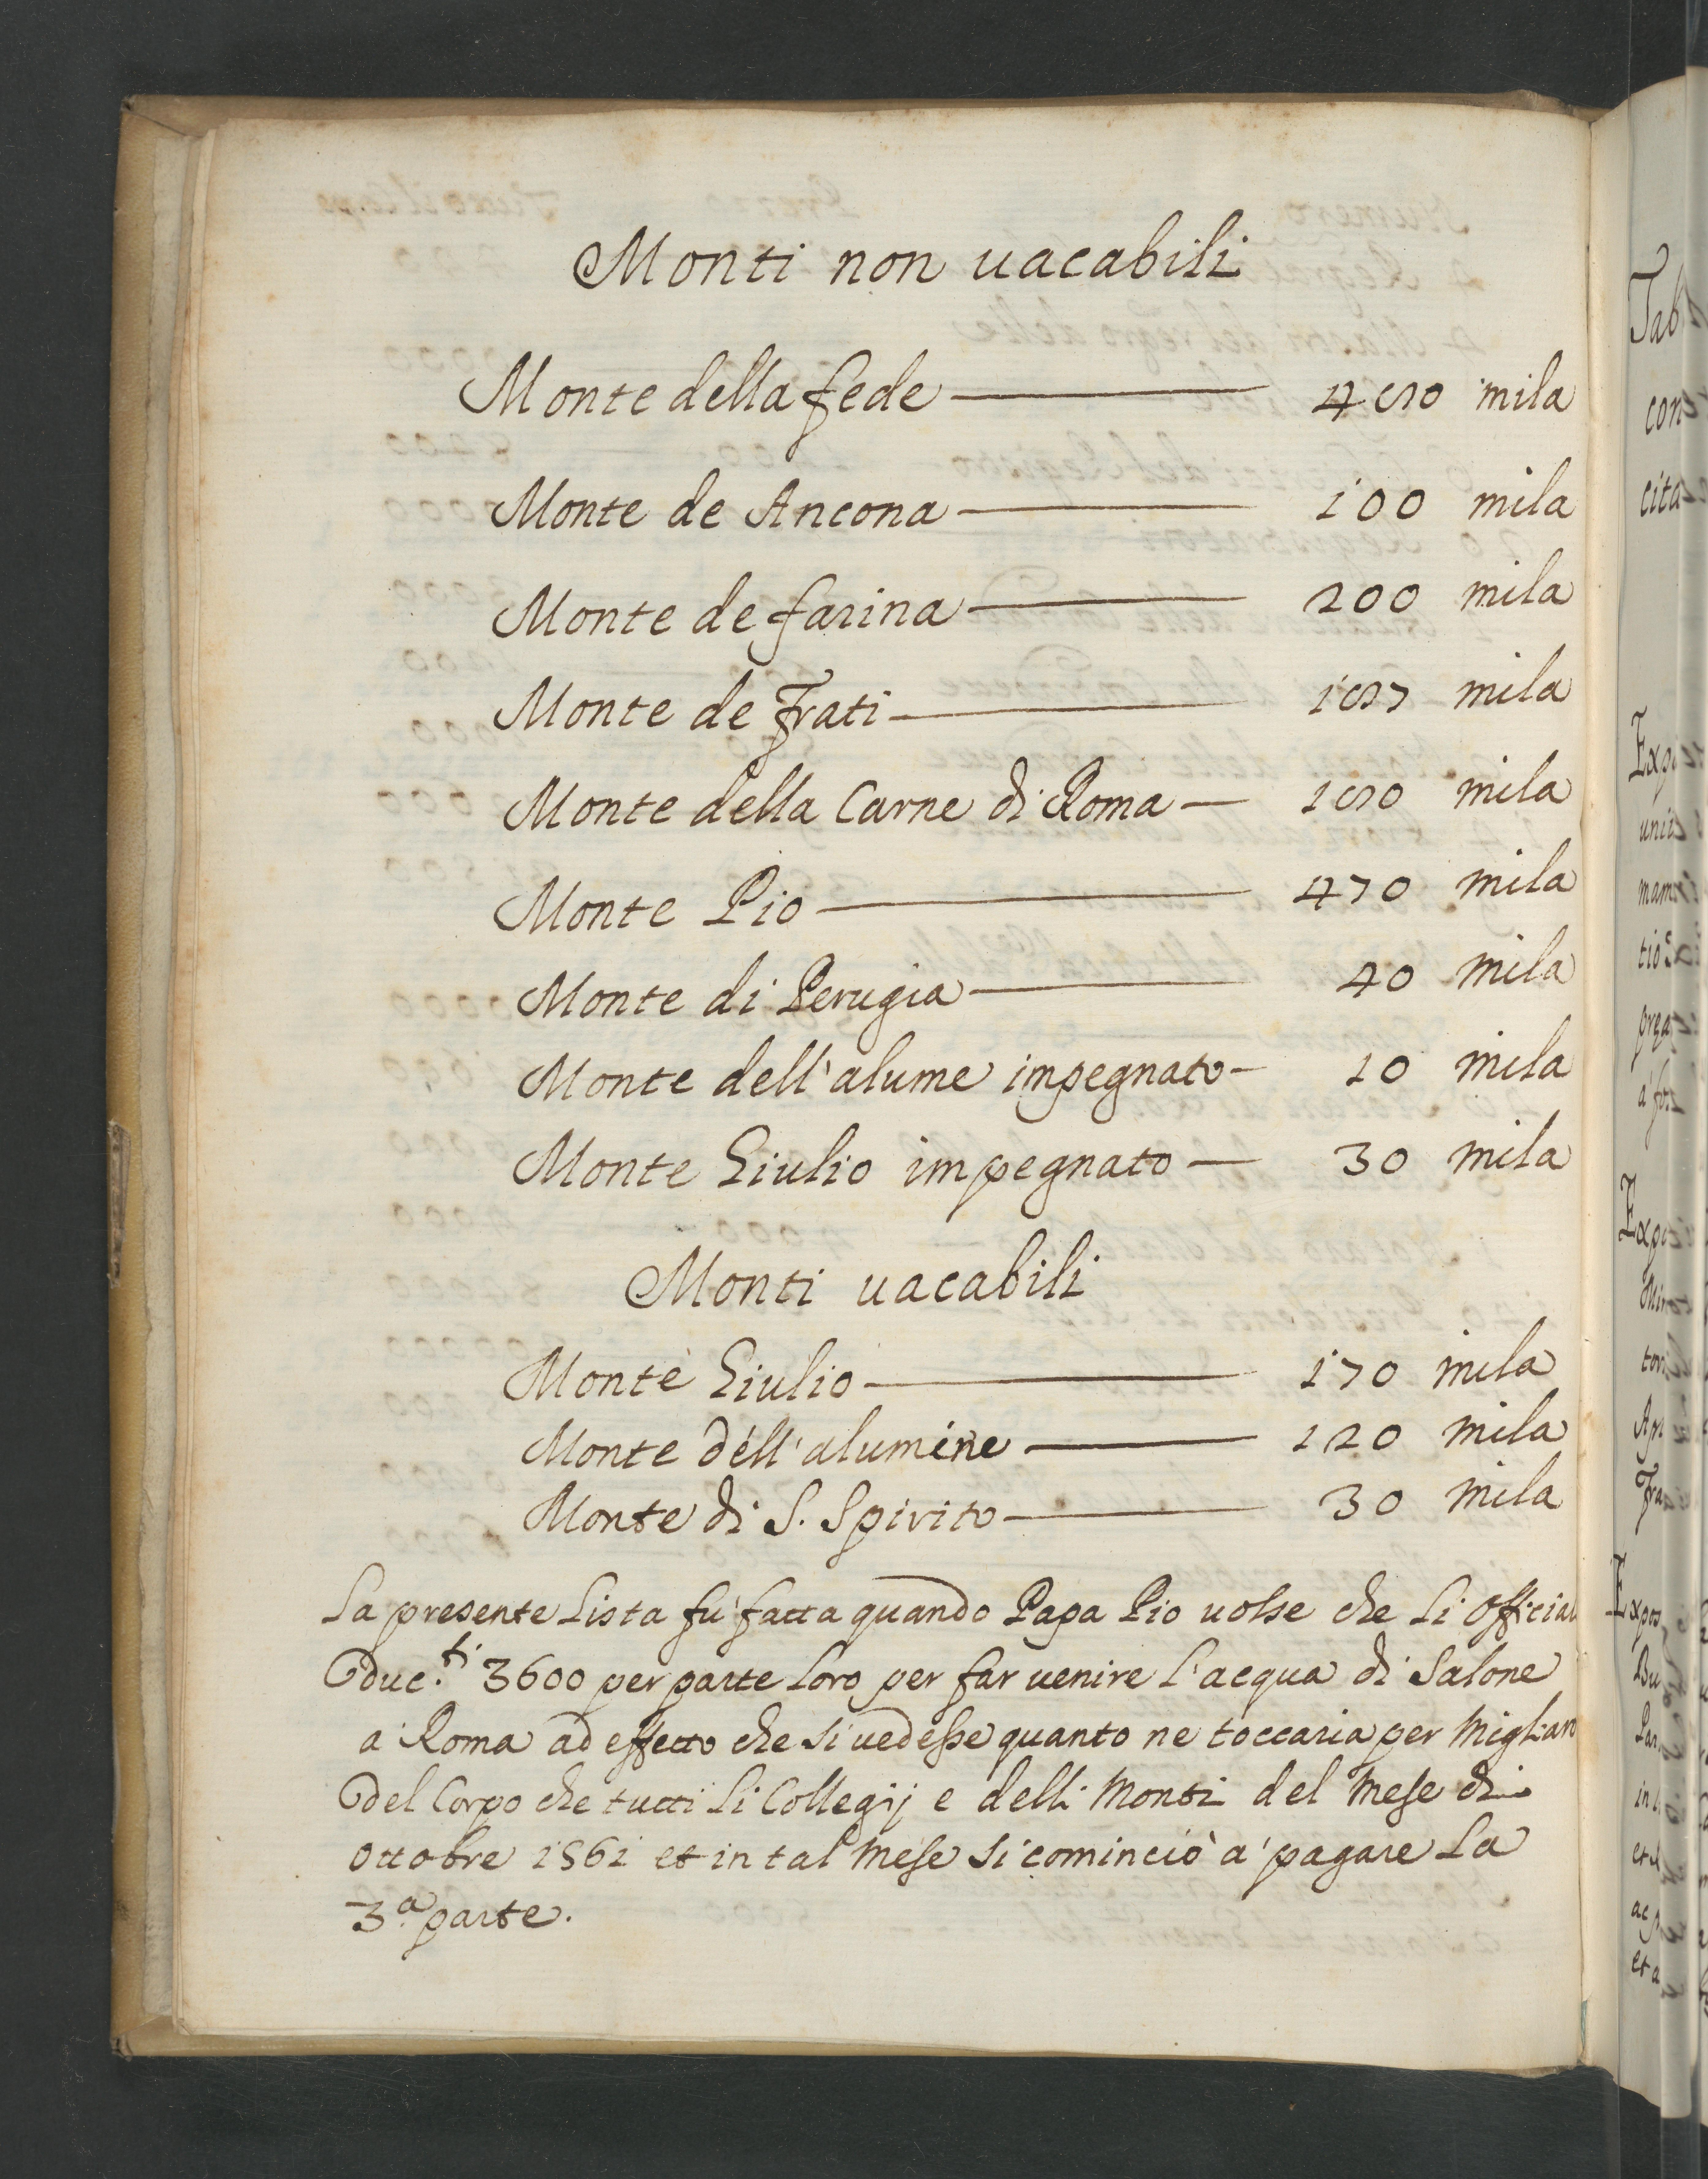 Monti non uacabili
Monte della fede 450 mila
Monte de Ancona 100 mila
Monte de farina 200 mila
Monte de Frati 157 mila
Monte della Carne di Roma 150 mila
Monte Pio 470 mila
Monte di Perugia 40 mila
Monte dell'alume impegnato 10 mila
Monte Giulio impegnato 30 mila
Monti uacabili
Monte Giulio 170 mila
Monte dell'alumine 120 mila
Monte di S. Spirito 30 mila
La presente Lista fu fatta quando Papa Pio uolse che li
duc.ti 3600 per parte loro per far uenire l'acqua di Salone
a Roma ad effetto che si uedesse quanto ne toccaria per
del Corpo che tutti li Collegij e delli Monti del Mese di
Ottobre 1561 et in tal Mese si cominciò à pagare la
3.a parte.